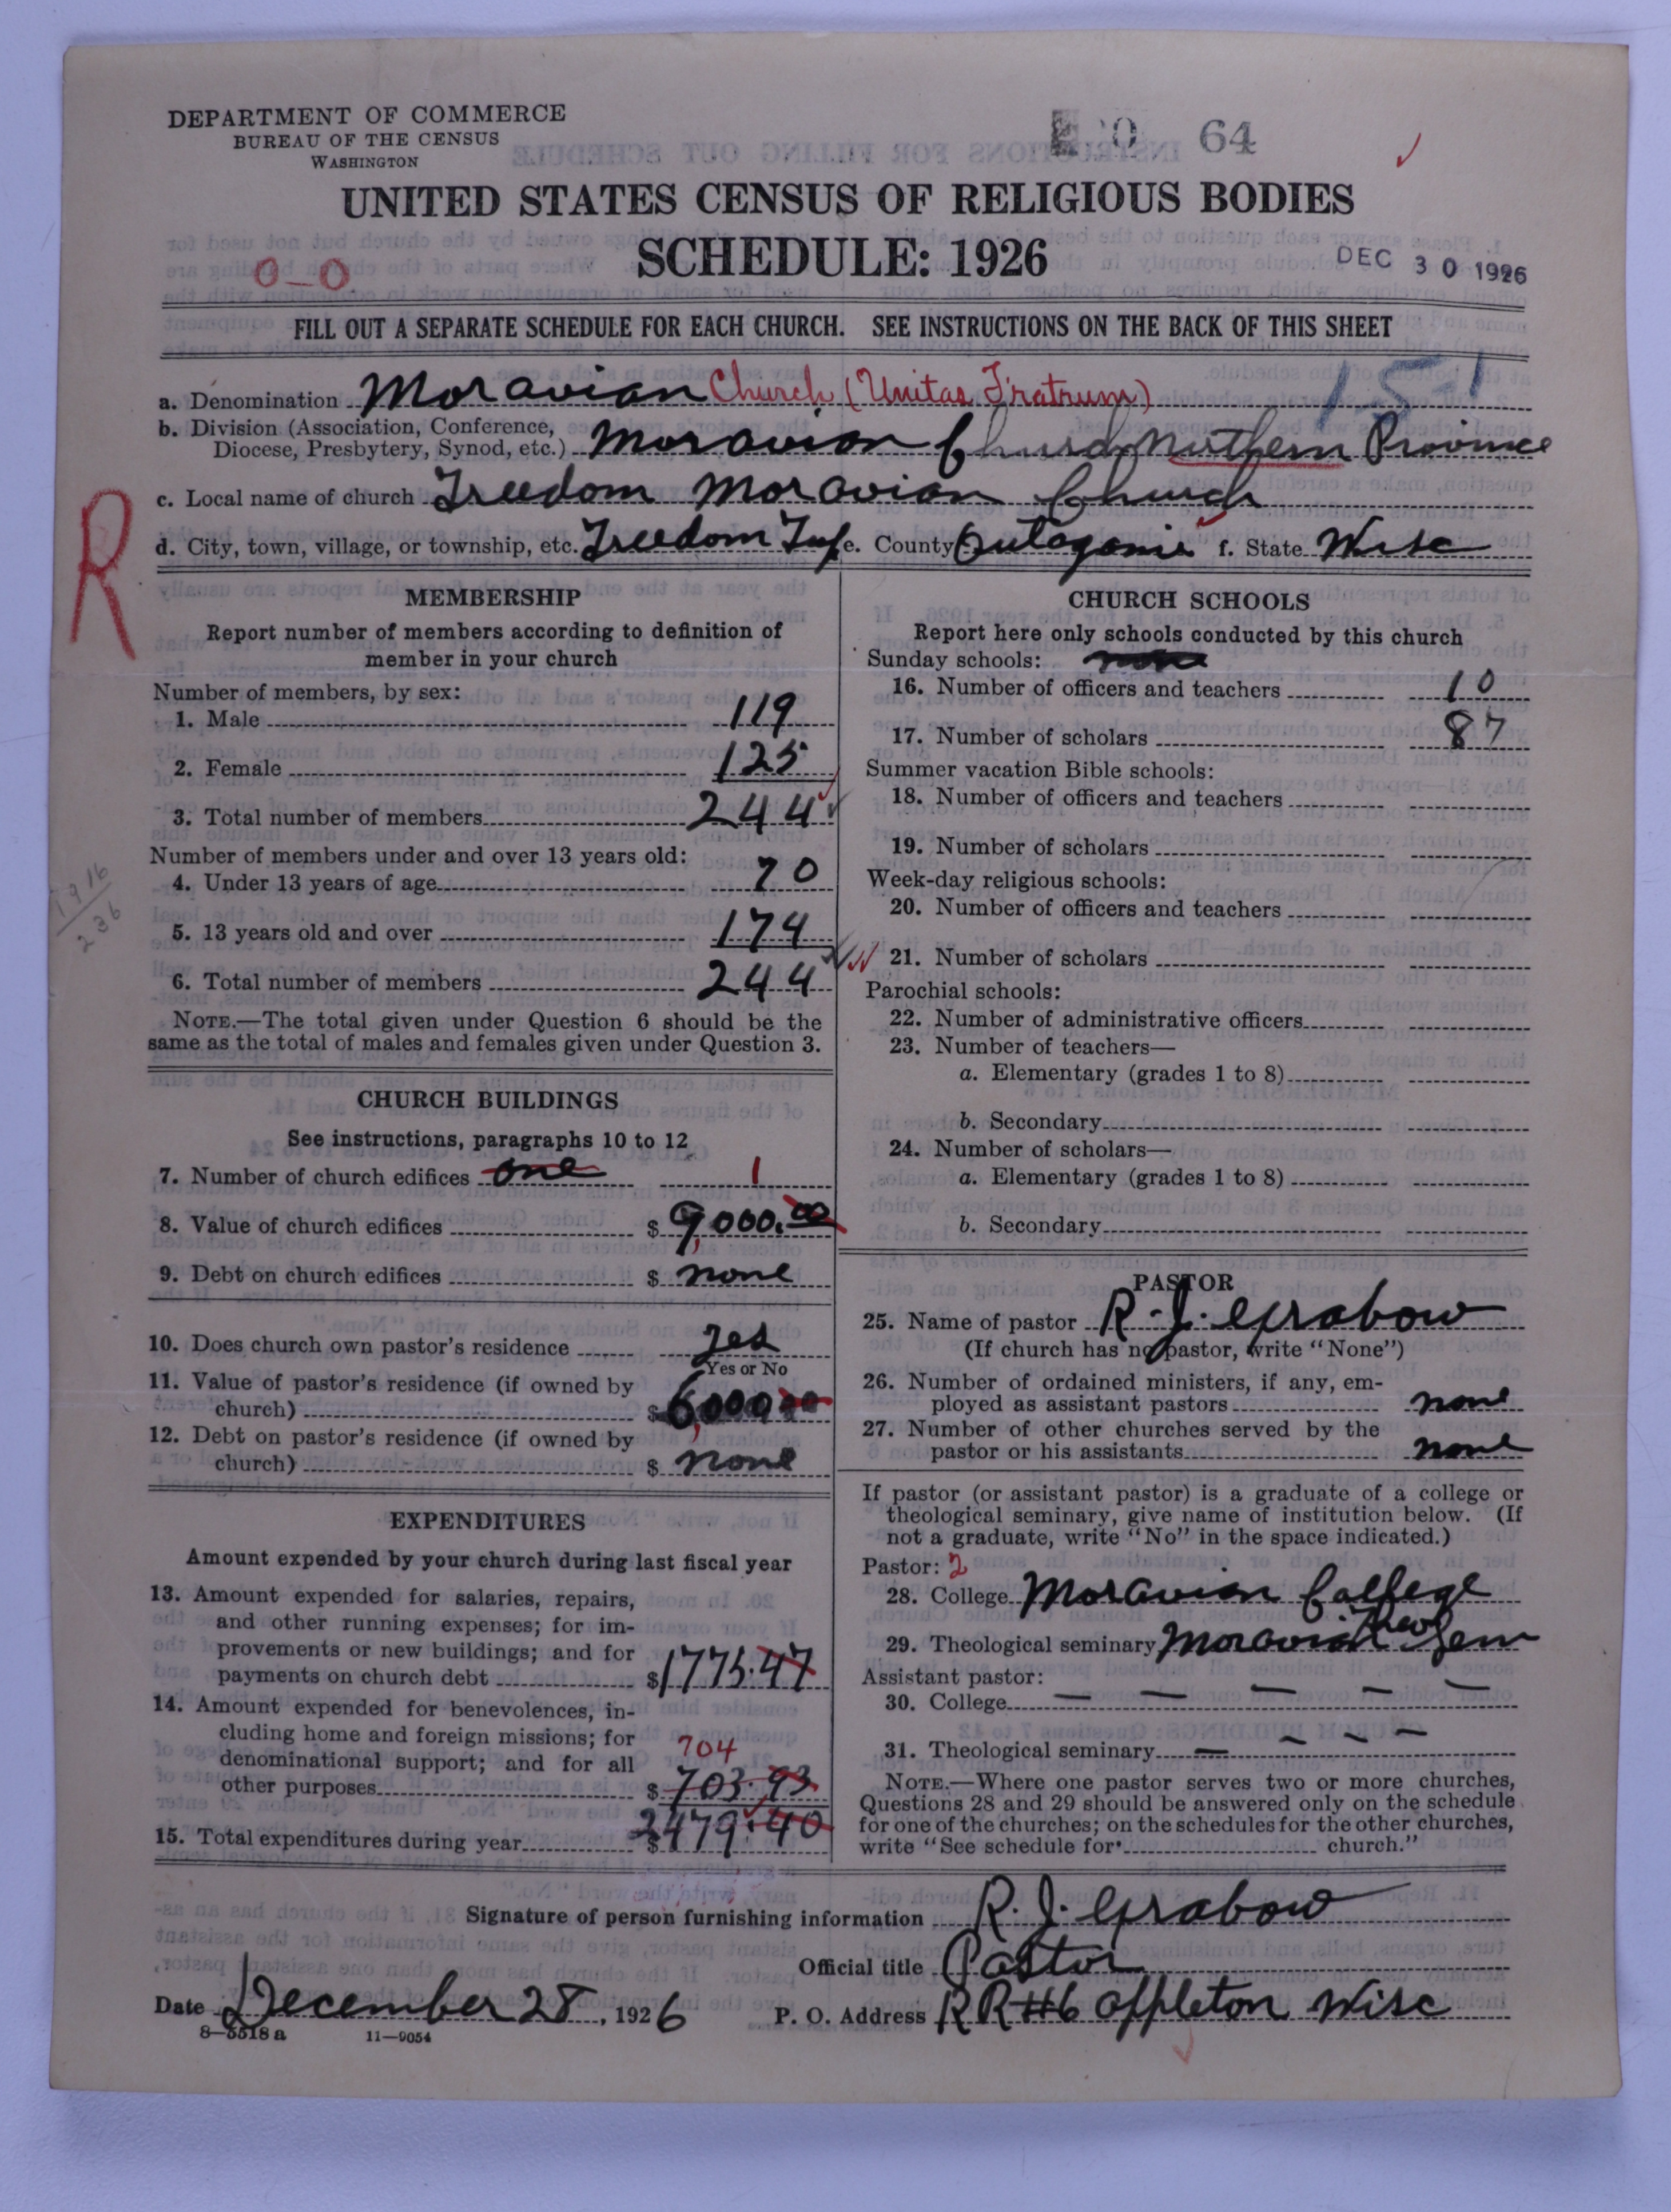 DEPARTMENT OF COMMERCE
BUREAU OF THE CENSUS
WASHINGTON
64
UNITED STATES CENSUS OF RELIGIOUS BODIES
SCHEDULE: 1926
0-0
DEC 30 1926
FILL OUT A SEPARATE SCHEDULE FOR EACH CHURCH. SEE INSTRUCTIONS ON THE BACK OF THIS SHEET
15-1
a. Denomination Moravian Church (Unitas Fratrum)
b. Division (Association, Conference,
Diocese, Presbytery, Synod, etc.) Moravian Church Northern Province
c. Local name of church Freedom Moravian Church
d. City, town, village, or township, etc. Freedom Twp e. County Outagamie f. State Wisc
R
MEMBERSHIP
Report number of members according to definition of
member in your church
Number of members, by sex:
1. Male 119
2. Female 125
3. Total number of members 244
Number of members under and over 13 years old:
4. Under 13 years of age 70
1916
236
5. 13 years old and over 174
6. Total number of members 244
NOTE.—The total given under Question 6 should be the
same as the total of males and females given under Question 3.
CHURCH BUILDINGS
See instructions, paragraphs 10 to 12
7. Number of church edifices one 1
8. Value of church edifices $ 9,000.00
9. Debt on church edifices $ none
10. Does church own pastor's residence yes
Yes or No
11. Value of pastor's residence (if owned by
church) $ 6,000 00
12. Debt on pastor's residence (if owned by
church) $ none
EXPENDITURES
Amount expended by your church during last fiscal year
13. Amount expended for salaries, repairs,
and other running expenses; for im-
provements or new buildings; and for
payments on church debt $ 1775.47
14. Amount expended for benevolences, in-
cluding home and foreign missions; for
denominational support; and for all
704
other purposes $ 703.93
15. Total expenditures during year $ 2479.40
CHURCH SCHOOLS
Report here only schools conducted by this church
Sunday schools: none
16. Number of officers and teachers 10
17. Number of scholars 87
Summer vacation Bible schools:
18. Number of officers and teachers
19. Number of scholars
Week-day religious schools:
20. Number of officers and teachers
21. Number of scholars
Parochial schools:
22. Number of administrative officers
23. Number of teachers—
a. Elementary (grades 1 to 8)
b. Secondary
24. Number of scholars—
a. Elementary (grades 1 to 8)
b. Secondary
PASTOR
25. Name of pastor R. J. Grabow
(If church has no pastor, write "None")
26. Number of ordained ministers, if any, em-
ployed as assistant pastors none
27. Number of other churches served by the
pastor or his assistants none
If pastor (or assistant pastor) is a graduate of a college or
theological seminary, give name of institution below. (If
not a graduate, write "No" in the space indicated.)
Pastor: 2
28. College Moravian College
29. Theological seminary Moravian Theol Sem
Assistant pastor:
30. College — — — — —
31. Theological seminary — — — —
NOTE.—Where one pastor serves two or more churches,
Questions 28 and 29 should be answered only on the schedule
for one of the churches; on the schedules for the other churches,
write "See schedule for church."
Signature of person furnishing information R. J. Grabow
Official title Pastor
Date December 28, 1926 P. O. Address RR #6 Appleton Wisc
8-5518 a 11-9054